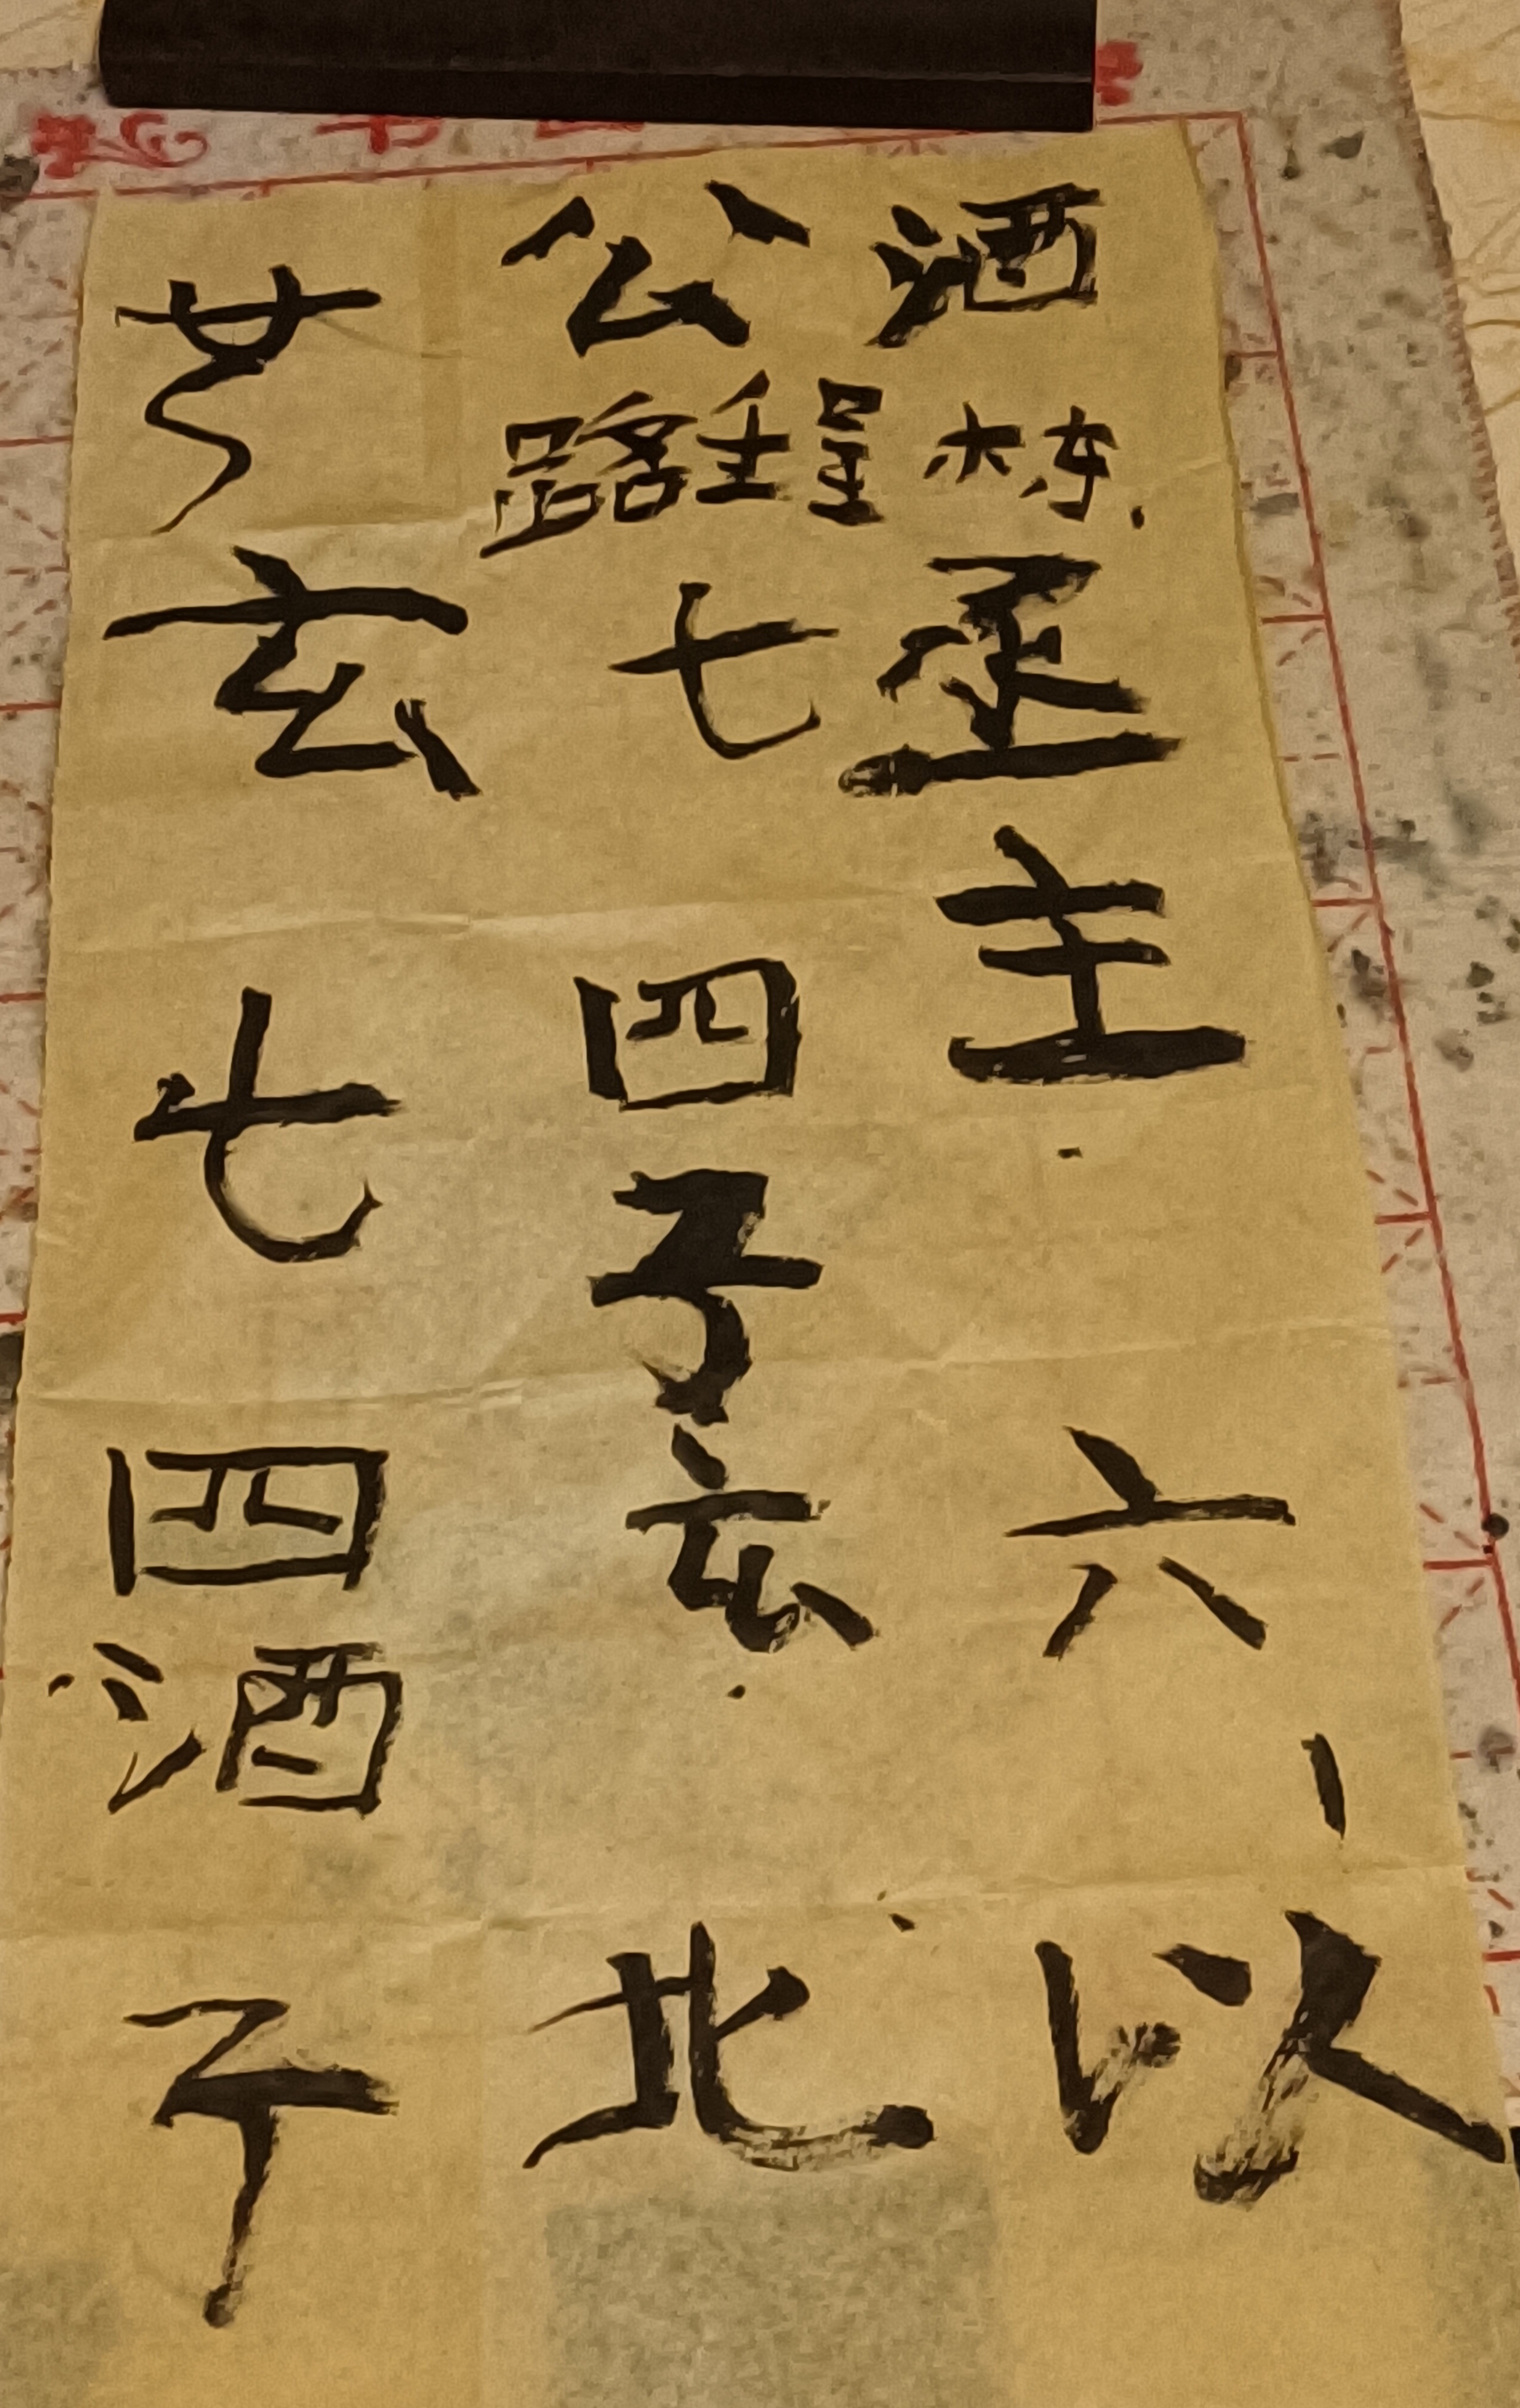 酒栋丞主六以
公路程七四子玄北
芝玄七四酒子